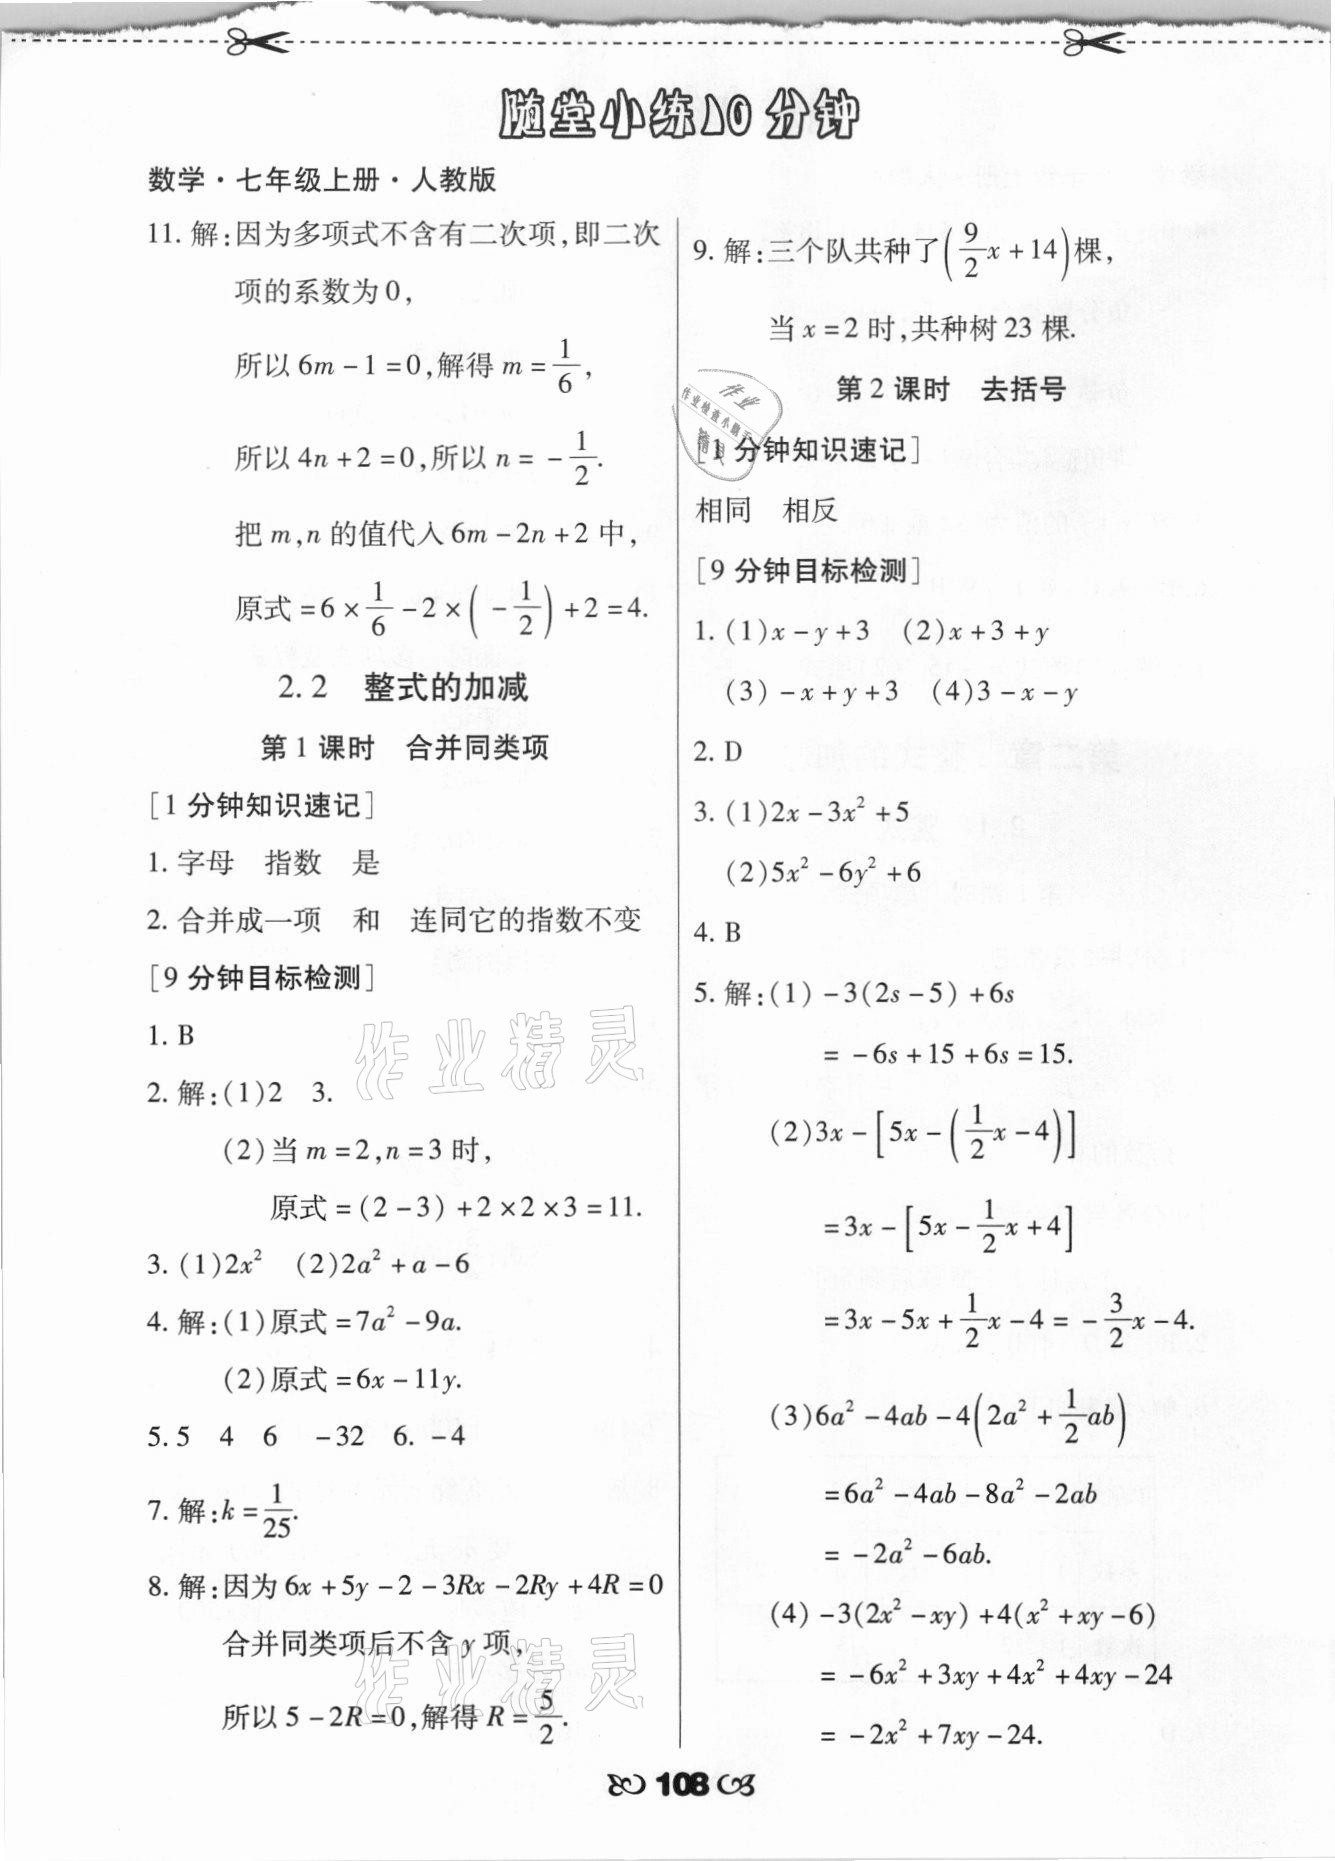 随堂小练10分钟
数学·七年级上册·人教版
11. 解:因为多项式不含有二次项,即二次
项的系数为0,
所以 6m-1=0,解得 m=1/6,
所以 4n+2=0,所以 n=-1/2.
把 m,n 的值代入 6m-2n+2 中,
原式=6×1/6-2×(-1/2)+2=4.
2.2 整式的加减
第1课时 合并同类项
[1分钟知识速记]
1. 字母 指数 是
2. 合并成一项 和 连同它的指数不变
[9分钟目标检测]
1. B
2. 解:(1)2 3.
(2)当 m=2,n=3 时,
原式=(2-3)+2×2×3=11.
3. (1)2x² (2)2a²+a-6
4. 解:(1)原式=7a²-9a.
(2)原式=6x-11y.
5. 5 4 6 -32 6. -4
7. 解:k=1/25.
8. 解:因为 6x+5y-2-3Rx-2Ry+4R=0
合并同类项后不含 y 项,
所以 5-2R=0,解得 R=5/2.
9. 解:三个队共种了(9/2x+14)棵,
当 x=2 时,共种树 23 棵.
第2课时 去括号
[1分钟知识速记]
相同 相反
[9分钟目标检测]
1. (1)x-y+3 (2)x+3+y
(3)-x+y+3 (4)3-x-y
2. D
3. (1)2x-3x²+5
(2)5x²-6y²+6
4. B
5. 解:(1)-3(2s-5)+6s
=-6s+15+6s=15.
(2)3x-[5x-(1/2x-4)]
=3x-[5x-1/2x+4]
=3x-5x+1/2x-4=-3/2x-4.
(3)6a²-4ab-4(2a²+1/2ab)
=6a²-4ab-8a²-2ab
=-2a²-6ab.
(4)-3(2x²-xy)+4(x²+xy-6)
=-6x²+3xy+4x²+4xy-24
=-2x²+7xy-24.
108
作业精灵
作业精灵
作业
作业检查小助手
精灵